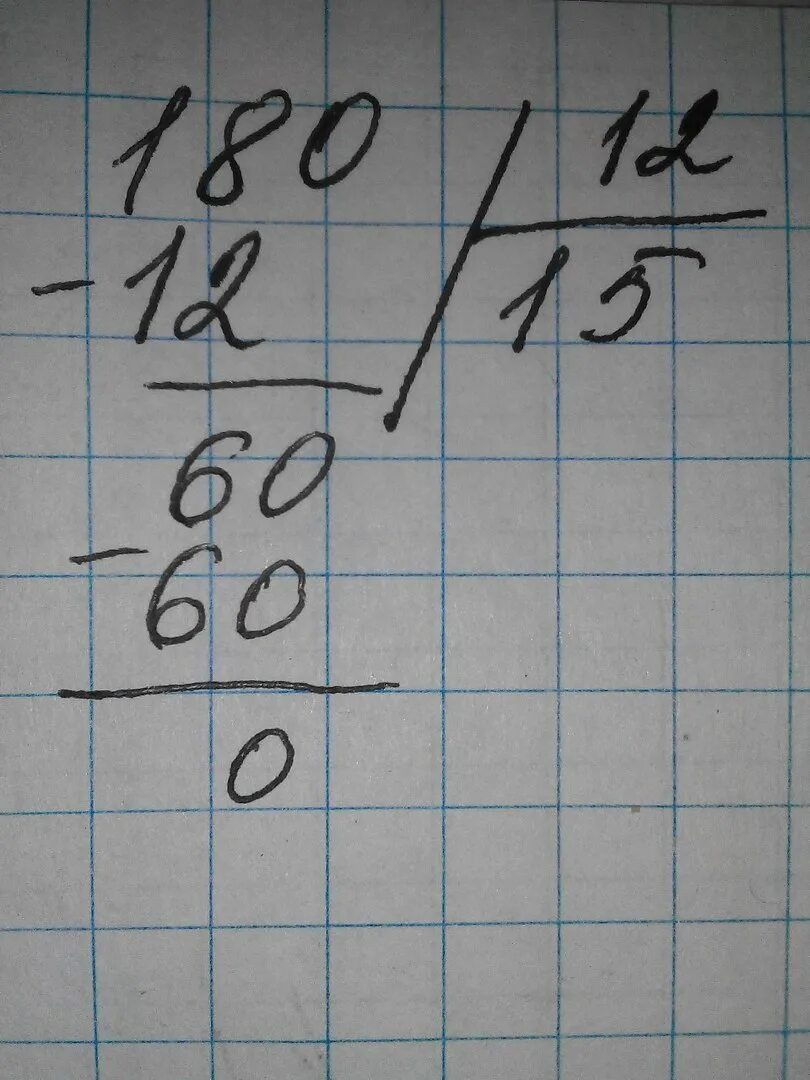 180 12
-12 15
60
-60
0